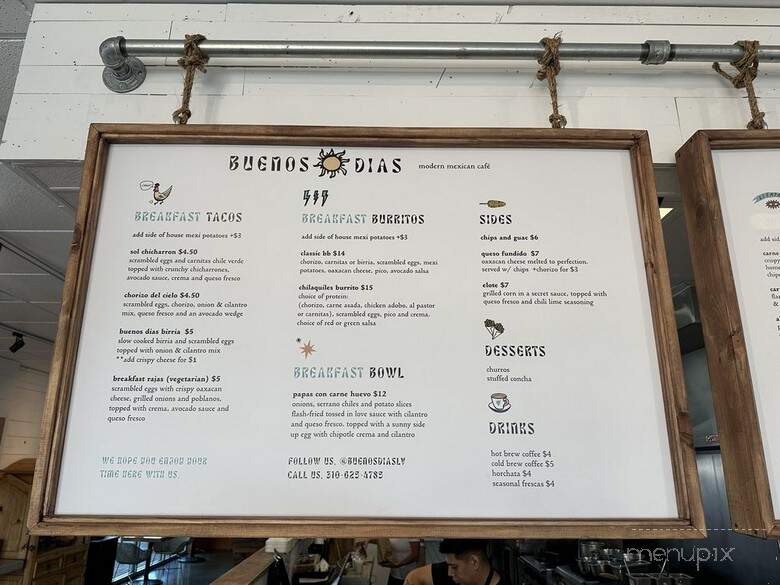 BUENOS DIAS modern mexican café
BREAKFAST TACOS
add side of house mexi potatoes +$3
sol chicharron $4.50
scrambled eggs and carnitas chile verde
topped with crunchy chicharrones,
avocado sauce, crema and queso fresco
chorizo del cielo $4.50
scrambled eggs, chorizo, onion & cilantro
mix, queso fresco and an avocado wedge
buenos dias birria $5
slow cooked birria and scrambled eggs
topped with onion & cilantro mix
**add crispy cheese for $1
breakfast rajas (vegetarian) $5
scrambled eggs with crispy oaxacan
cheese, grilled onions and poblanos,
topped with crema, avocado sauce and
queso fresco
WE HOPE YOU ENJOY YOUR
TIME HERE WITH US.
BREAKFAST BURRITOS
add side of house mexi potatoes +$3
classic bb $14
chorizo, carnitas or birria, scrambled eggs, mexi
potatoes, oaxacan cheese, pico, avocado salsa
chilaquiles burrito $15
choice of protein:
(chorizo, carne asada, chicken adobo, al pastor
or carnitas), scrambled eggs, pico and crema,
choice of red or green salsa
BREAKFAST BOWL
papas con carne huevo $12
onions, serrano chiles and potato slices
flash-fried tossed in love sauce with cilantro
and queso fresco. topped with a sunny side
up egg with chipotle crema and cilantro
FOLLOW US, @BUENOSDIASLV
CALL US, 310-625-4783
SIDES
chips and guac $6
queso fundido $7
oaxacan cheese melted to perfection.
served w/ chips +chorizo for $3
elote $7
grilled corn in a secret sauce, topped with
queso fresco and chili lime seasoning
DESSERTS
churros
stuffed concha
DRINKS
hot brew coffee $4
cold brew coffee $5
horchata $4
seasonal frescas $4
menupix